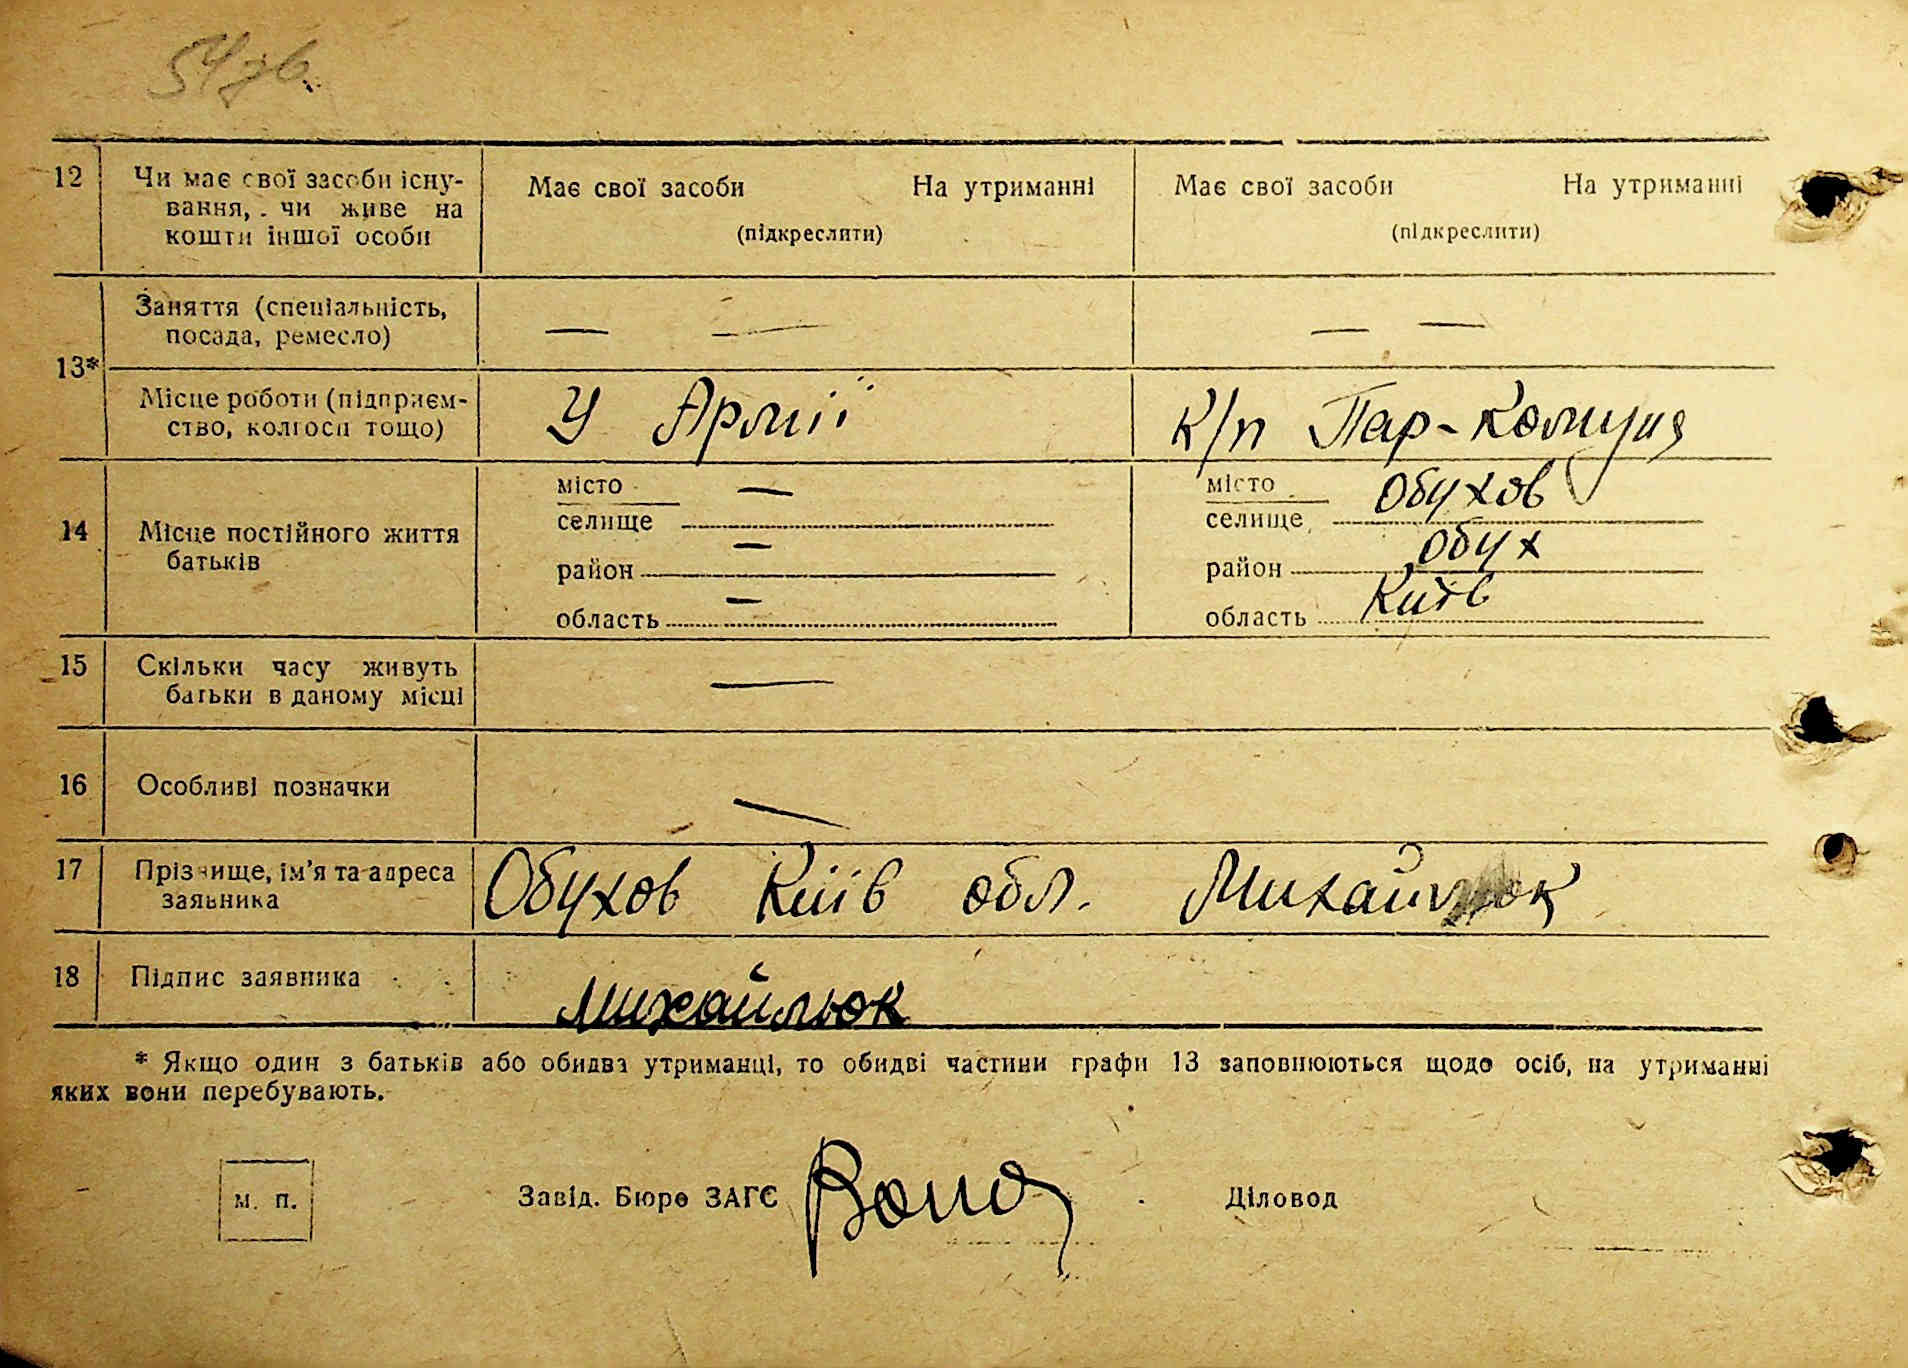 54 зв.
12 Чи має свої засоби існу- Має свої засоби На утриманні Має свої засоби На утриманні
вання, чи живе на
кошти іншої особи (підкреслити) (підкреслити)
13* Заняття (спеціальність, — — — —
посада, ремесло)
Місце роботи (підприєм- У Армії К/п Пар-Комуна
ство, колгосп тощо)
14 Місце постійного життя батьків
місто — місто Обухов
селище селище
район — район Обух
область — область Київ
15 Скільки часу живуть —
батьки в даному місці
16 Особливі позначки —
17 Прізвище, ім'я та адреса Обухов Київ обл. Михайлюк
заявника
18 Підпис заявника Михайлюк
* Якщо один з батьків або обидва утриманці, то обидві частини графи 13 заповнюються щодо осіб, на утриманні
яких вони перебувають.
М. П. Завід. Бюро ЗАГС Діловод